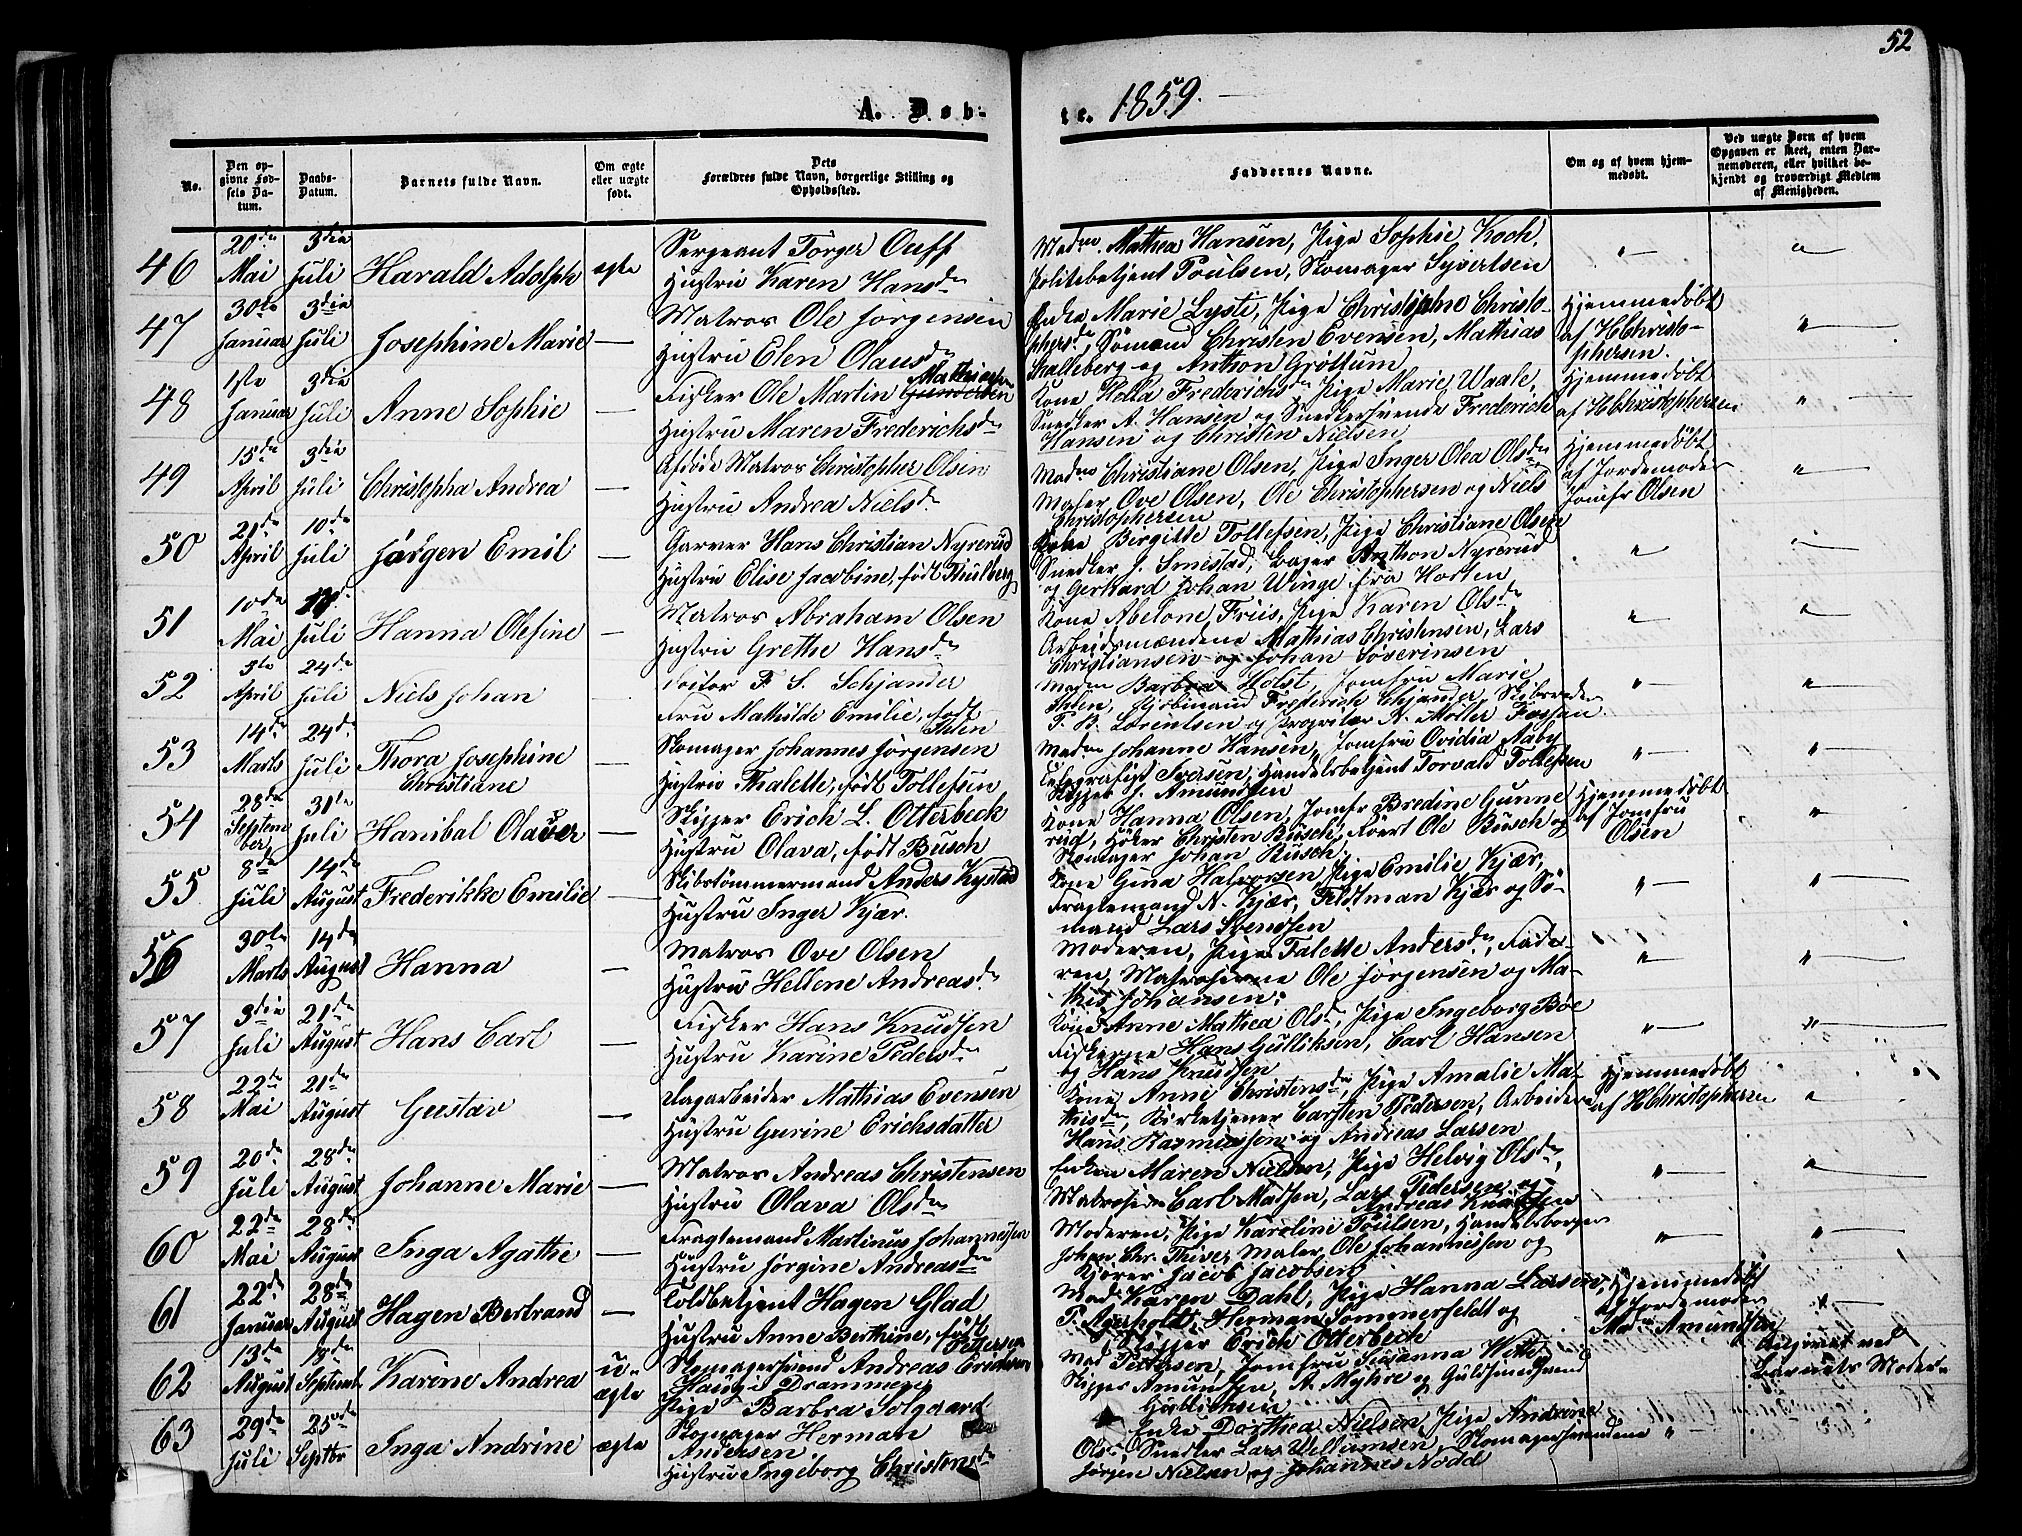 52
A. Døb-
te. 1859.
No.
Den op-
givne Fød-
sels Da-
tum.
Daabs-
Datum.
Barnets fulde Navn.
Om ægte
eller uægte
født.
Dets
Forældres fulde Navn, borgerlige Stilling og
Opholdssted.
Faddernes Navne.
Om og af hvem hjem-
medøbt.
Ved uægte Børn af hvem
Opgaven er skeet, enten Bar-
nemoderen, eller hvilket be-
kjendt og troværdigt Medlem
af Menigheden.
46
20de
Mai
3die
Juli
Harald Adolph
ægte
Sergeant Törger Ouff
Hustru Karen Hansdr
Madm Mathea Hansen, Pige Sophie Koch,
Politebetjent Poulsen, Skomager Syvertsen
47
30te
Januar
3die
Juli
Josephine Marie
Matros Ole Jörgensen
Hustru Elen Olausdr
Enke Marie Lysti, Pige Christiphne Christo-
phersdr, Sömand Christen Evensen, Mathias
Skalleberg og Anthon Gröttum
Hjemmedöbt
af HChristo-
phersen.
48
1ste
Januar
3die
Juli
Anne Sophie
Fisker Ole Martin Mathiesen
Hustru Maren Frederichsdr
Kone Holla Frederichsdr, Pige Marie Waale,
Snedker A. Hansen og Snedkersvende Frederich
Hansen og Christen Nielsen
Hjemmedöbt
af HChristophersen
49
15de
April
3die
Juli
Christopha Andrea
Afdöde Matros Christopher Olsen
Hustru Andrea Nielsdr
Madm Christiane Olsen, Pige Inger Olea Olsdr
Maler Ove Olsen, Ole Christophersen og Niels
Christophersen
Hjemmedöbt
af Jordemoder
Jomfr Olsen
50
21de
April
10de
Juli
Jörgen Emil
Garver Hans Christian Nyrerud
Hustru Elise Jacobine, född Thulberg
Kone Bergitte Tollefsen, Pige Christiane Olsen
Snedker J. Smestad, Bager Anthon Nyrerud
og Gerhard Johan Winge fra Horten
51
10de
Mai
Juli
Hanna Olefine
Matros Abraham Olsen
Hustru Grethe Hansdr
Kone Abelone Friis, Pige Karen Olsdr
Arbeidsmændene Mathias Christensen, Lars
Christiansen og Johan Söverinsen
52
5te
April
24de
Juli
Niels Johan
Doctor F. S. Schjander
Fru Mathilde Emilie, född
Ihlen
Madm Barbra Holst, Jomfru Marie
Ihlen, Frederich Schjander, Skibsreder
P. B. Lorentsen og Propritær N. Möller
53
14de
Marts
24de
Juli
Thora Josephine
Christiane
Skomager Johannes Jörgensen
Hustru Thalette, född Tollefsen
Madm Johanne Hansen, Jomfru Ovidia Aaby
Telegrafist Iversen, Handelsbetjent Torvald Tollefsen
Skipper J. Amundsen
54
28de
Septem
ber
31te
Juli
Hanibal Olauser
Skipper Erich L. Otterbeck
Hustru Olava, född Busch
Kone Hanna Olsen, Jomfr Bredine Gunne
rud, Höker Christen Busch, Ole Busch og
Skomager Johan Busch.
Hjemmedöbt
af Jomfru
Olsen
55
8de
Juli
14de
August
Frederikke Emilie
Skibstömmermand Anders Kystad
Hustru Inger Kjær.
Kone Gina Halvorsen, Pige Emilie Kjær,
Fragtemand N. Kjær, Feldtman Kjær og Sö-
mand Lars Svendsen
56
30te
Marts
14de
August
Hanna
Matros Ove Olsen
Hustru Hellene Andreasdr
Moderen, Pige Talette Andersdr, Fade-
ren, Matroserne Ole Jörgensen og Ma-
this Johansen.
57
3die
Juli
21de
August
Hans Carl
Fisker Hans Knudsen
Hustru Karine Pedersdr
Kone Anne Mathea Olsd, Pige Ingeborg Böe
Fiskerne Hans Gulliksen, Carl Hansen
og Hans Knudsen
58
22de
Mai
21de
August
Gustav
Dagarbeider Mathias Evensen
Hustru Gurine Erichsdatter
Kone Anne Christensdr, Pige Amalie Ma-
thisdr, Kirketjener Carsten Pedersen, Arbeiderne
Hans Rasmussen og Andreas Larsen
Hjemmedöbt
af HChristophersen
59
20de
Juli
28de
August
Johanne Marie
Matros Andreas Christensen
Hustru Olava Olsdr
Enken Maren Nielsen, Pige Helvig Olsdr,
Matroserne Carl Madsen, Lars Pedersen og
Andreas Knudsen
60
22de
Mai
28de
August
Inga Agathe
Fragtemand Martinus Johannesen
Hustru Jörgine Andreasdr
Moderen, Pige Karoline Poulsen, Handelsborger
Johan Chr. Thiver, Maler Ole Johannesen og
Kjörer Jacob Jacobsen
61
22de
Januar
28de
August
Hagen Bertrand
Toldbetjent Hagen Glad
Hustru Anne Berthine, född
Pettersen
Mad. Karen Dahl, Pige Hanna Larsen,
P. Agerholdt, Herman Sommerfeldt og
Skipper Erich Otterbeck
Hjemmedöbt
af Jordemoder
Madm Amundsen
62
13de
August
18de
Septemb
Karine Andrea
u-
ægte
Skomagersvend Andreas Erichsen
Haug i Drammen
Pige Barbra Solgaard
Mad Pedersen, Jomfru Susanna Witte,
Skipper Amundsen, A. Myhre og Guldsmedsvend
Gulliksen
Angivet ved
Barnets Moder
63
29de
Juli
25de
Septbr
Inga Andrine
ægte
Skomager Herman
Andersen
Hustru Ingeborg Christensdr
Enke Dorthea Nielsen, Pige Andrine
Olsd Snedker Lars Willumsen, Skomagersvendene
Jörgen Nielsen og Johannes Nodd